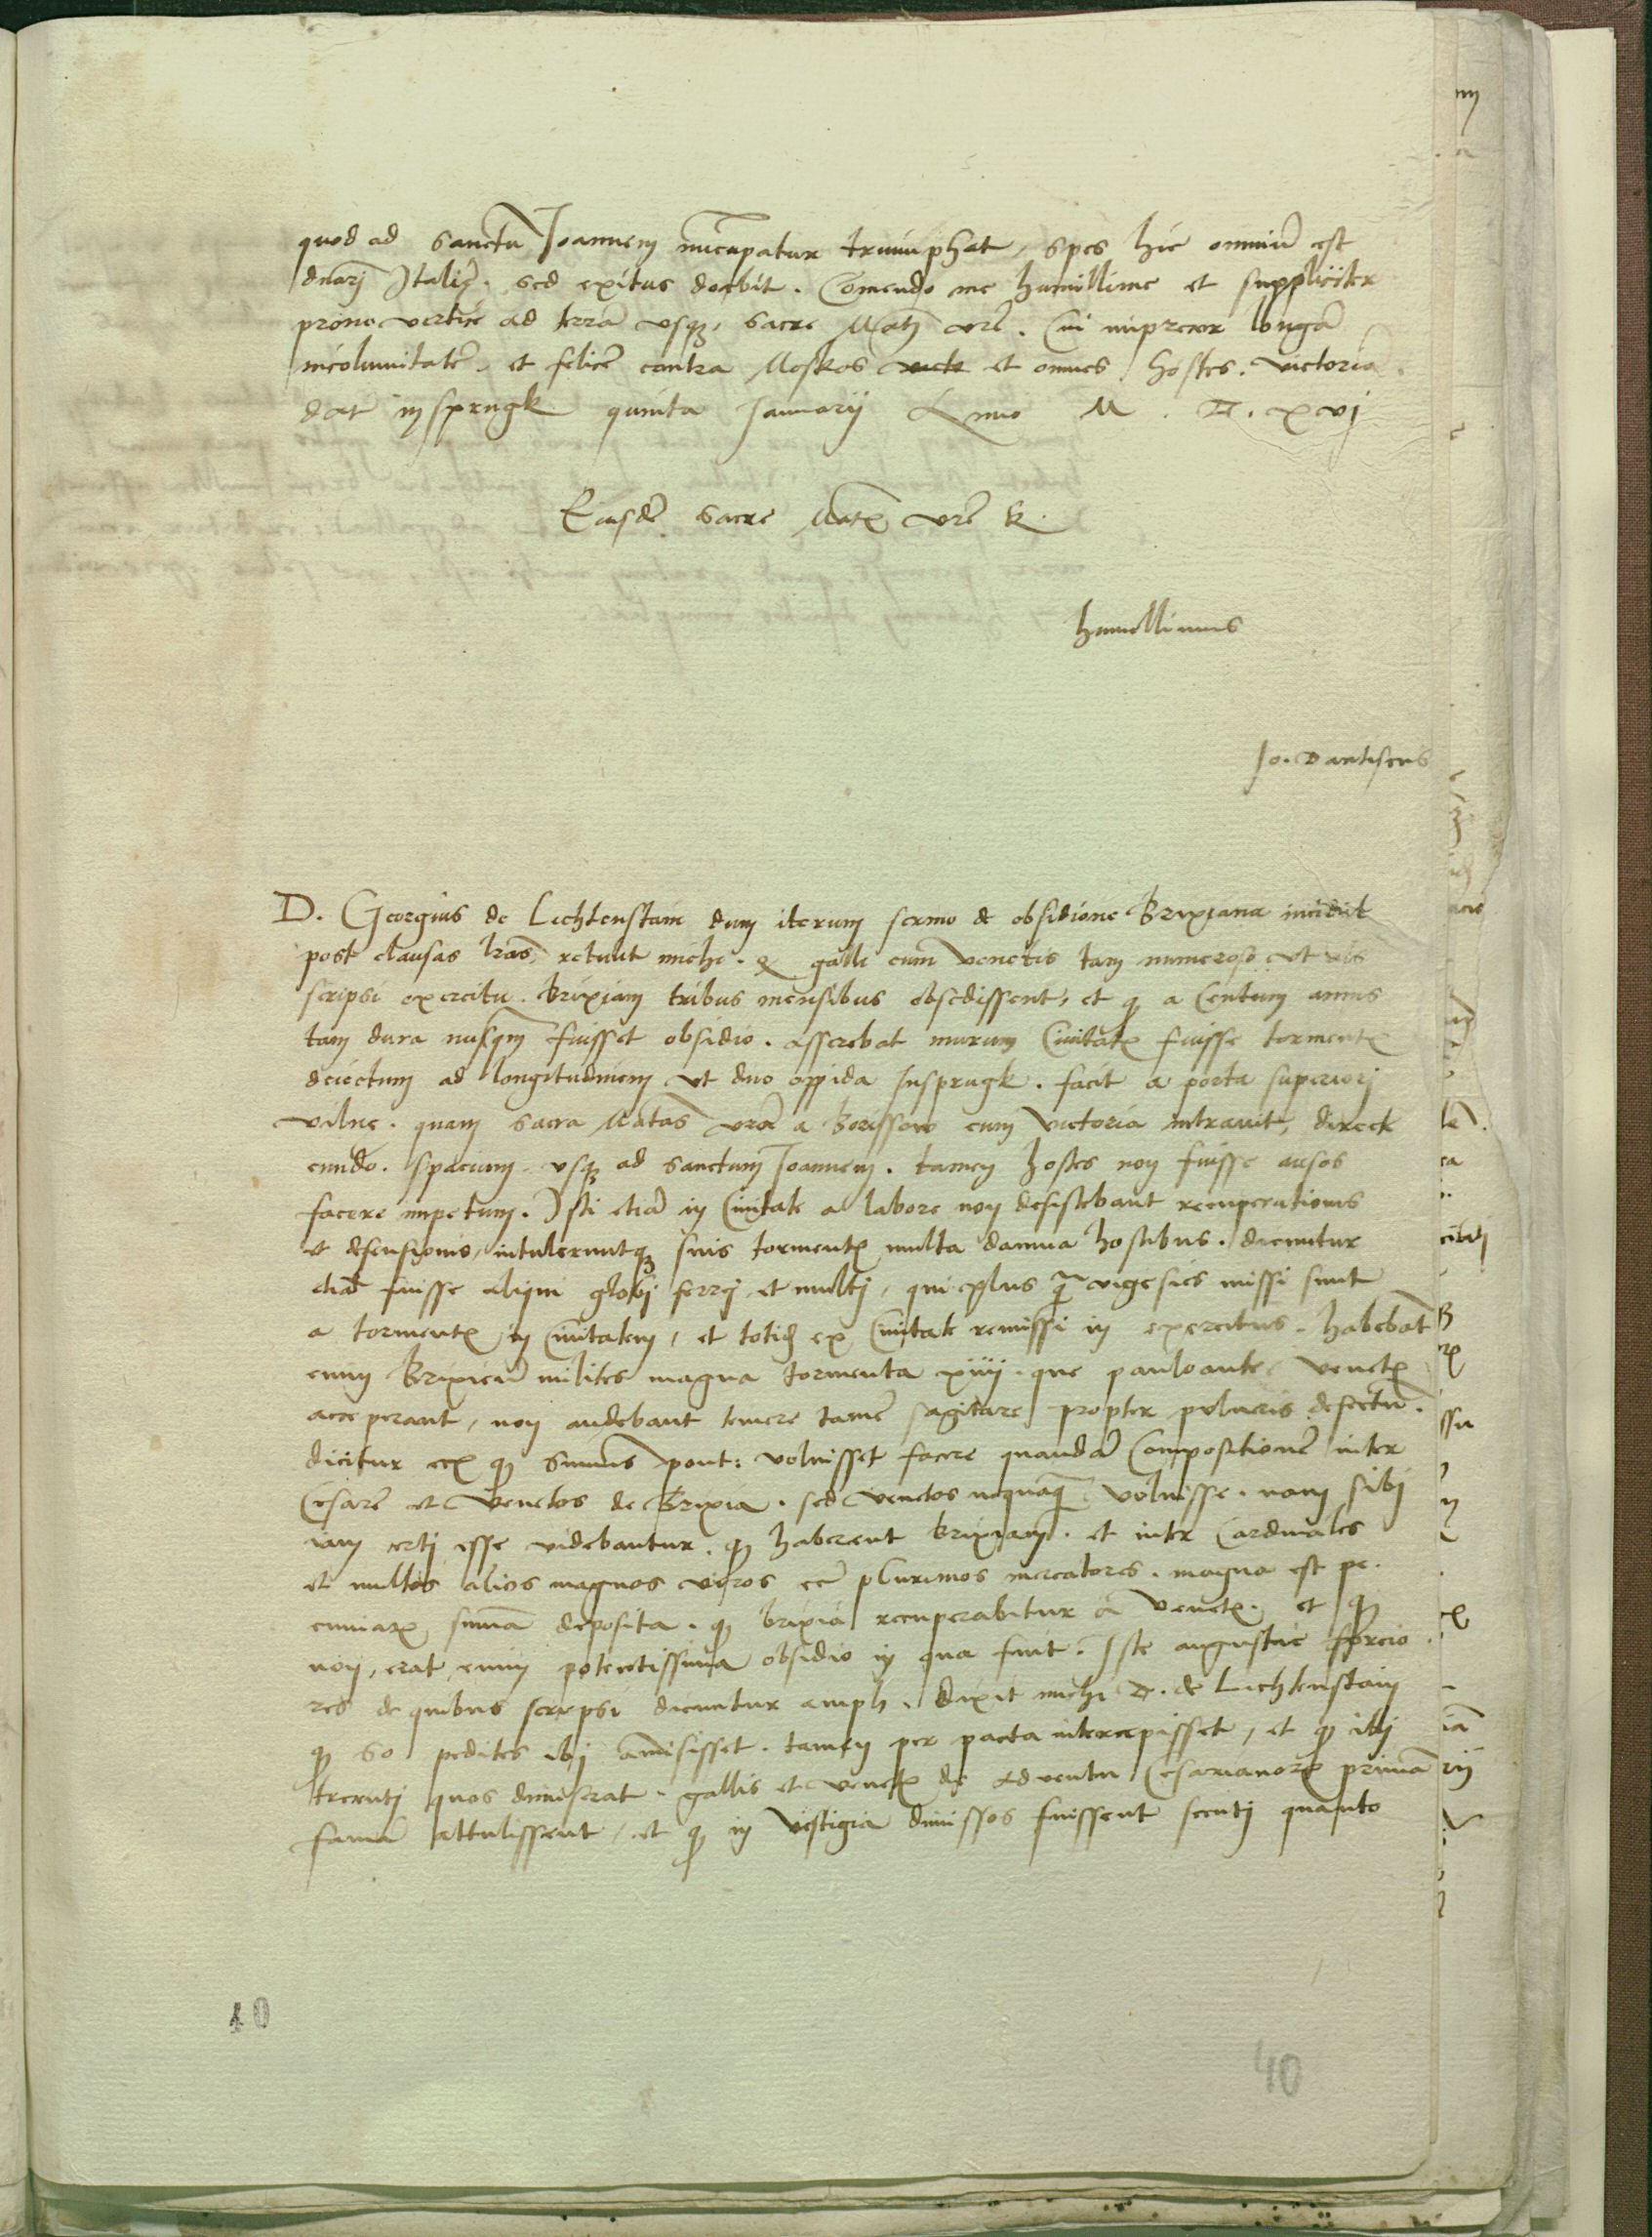 quod ad sanctū Joannem nūcupatur triumphat, spes hic omniū est
dnarj Italię. sed exitus docbit. Comendo me humillime et suppliciter
prono vertice ad terrā vsqȝ, sacre Matȝ vrē. Cui imprecor longā
incolumitatē, et felicē contra Moskos et omnes hostes. victoriā.
dat jnsprugk quinta Januarij Anno M. D. xvj
Eiusdē sacre Matȝ vrē &.
humillimus
Jo. Dantiscus
D. Georgius de Lichtenstain dum iterum sermo de obsidione Brixiana incidit
post clausas lrās, retulit michi. galli cum venetis tam numeroso vt
scripsi exercitu. Brixiam tribus mensibus obsedissent, et qȝ a Centum annis
tam dura nusqm̄ fuisset obsidio. asserebat murum Ciuitatȝ fuisse tormentȝ
deiectum ad longitudinem vt duo oppida Insprugk. facit a porta superiorj
vilne. quam sacra Matas vrā a Borissow cum victoria intrauit, directe
eundo. spacium vsqȝ ad sanctum Joannem. tamen hostes non fuisse ausos
facere impetum. Isti etiā in Ciuitate a labore non desistebant recuperationis
et defensionis, intuleruntqȝ suis tormentȝ multa damna hostibus. dicuntur
etiā fuisse aliqui globj ferrj et multj, qui plus q̄ vigesies missi sunt
a tormentȝ in Ciuitatem, et totiȝ ex Ciuitate remissi in exercitus. habebāt
enim Brixien̄ milites magna tormenta xiiij. que pauloante venetȝ
acceperant, non audebant temere tamē sagitare propter pulueris defectū.
dicitur qȝ summus pont: voluisset facere quandā Compositionē inter
Cesarē et Venetos de Brixia. sed venetos nequaq̄ voluisse. nam sibj
iam certj esse videbantur. qȝ haberent brixiam. et inter Cardinales
et multos alios magnos viros plurimos mercatores. magna est pe-
cuniarȝ summa deposita. qȝ brixia recuperabitur a venetȝ. et qȝ
non, erat enim potentissima obsidio in qua fuit. Iste angustie forcio-
res de quibus scripsi dicuntur amplȝ. Dixit michi D. de Lichtenstain
qȝ 60 pedites ibj amisisset. tamen per pacta intercepisset, et qȝ illj
trecentj quos dimiserat. gallis et venetȝ de aduentu Cesarianorȝ primā
famā attulissent, et qȝ in vestigia dimissos fuissent secutj quanto
40
40